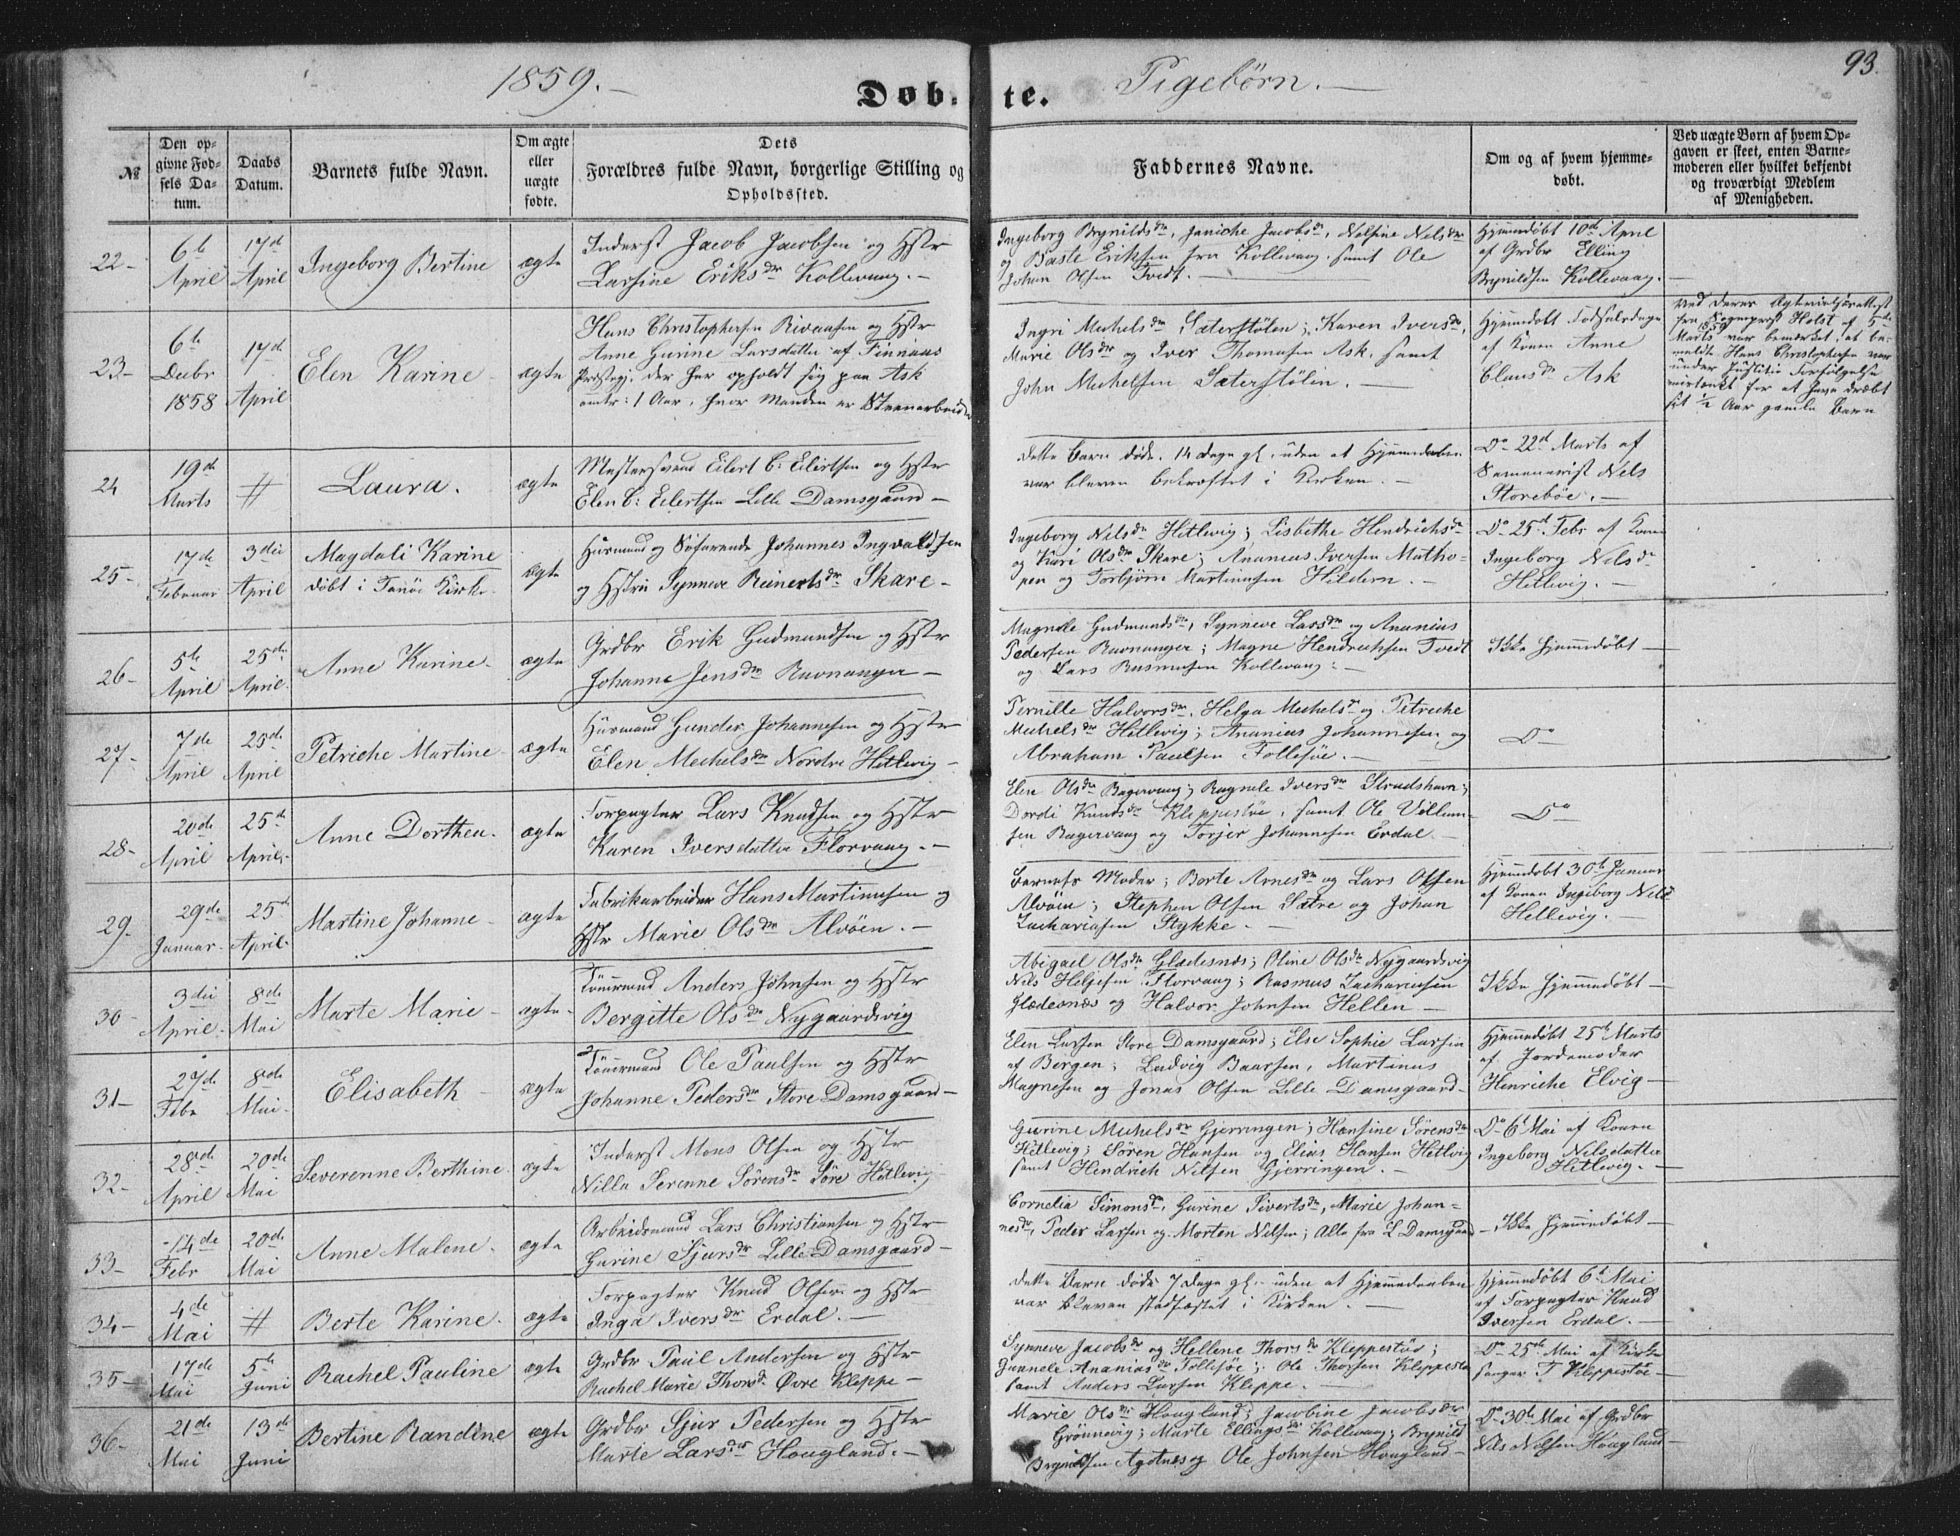 1859.
Døbte. Pigebørn.
93.
No
Den opgivne Fødsels Datum.
Daabs Datum.
Barnets fulde Navn.
Om ægte eller uægte fødte.
Dets Forældres fulde Navn, borgerlige Stilling og Opholdssted.
Faddernes Navne.
Om og af hvem hjemmedøbt.
Ved uægte Børn af hvem Opgaven er skeet, enten Barnemoderen eller hvilket bekjendt og troværdigt Medlem af Menigheden.
22-
6te April
17de April
Ingeborg Bertine
ægte
Inderst Jacob Jacobsen og Hstr
Larsine Eriksdr Kollevaag.
Ingeborg Brynildsdr, Janiche Jacobsdr, Nelsine Nelsdr
og Baste Eriksen fra Kollevaag samt Ole
Johan Olsen Tvedt.
Hjemmedøbt 10de April
af Grdbr Elling
Brynildsen Kollevaag.
23-
6te Decbr 1858
17de April
Elen Karine
ægte
Hans Christophersen og Hstr
Anne Gurine Larsdatter af Finnaas
Præstegj. der her opholdt sig paa Ask
omtr: 1 Aar, hvor Manden er Steenarbeider
Ingri Michelsdr Sæterstølen; Karen Iversdr,
Marie Olsdr og Iver Thomasen Ask samt
John Michelsen Sæterstølen.
Hjemmedøbt Fødselsdagen
af Konen Anne
Clausdr Ask
Ved deres
fra Sogneprest Holst af 5te
Marts 1859 var bemærket at be-
meldte Hans Christophersen var
under Justitie Forfølgelse
mistænkt for at have dræbt
sit 1/2 Aar gamle Barn
24
19de Marts
#
Laura.
ægte
Mestersvend Eilert C: Eilertsen og Hstr
Elen C: Eilertsen Lille Damsgaard
Dette Barn døde 14 Dage gl. uden at Hjemmedaaben
var bleven bekræftet i Kirken.
Do 22de Marts af
Seminarist Nels
Storebøe.
25-
17de Februar
3die April
Magdali Karine
døbt i Fanøe Kirke
ægte
Huusmand og Søfarende Johannes Ingvaldsen
og Hstru Synneve Reinertsdr Skare
Ingeborg Nilsdr Hetlevig; Lisbethe Hendrichsdr
og Kari Olsdr Skare; Ananias Iversen Matho-
pen og Torbjørn Martinusen Hildern.
Do 25de Febr af Konen
Ingeborg Nelsdr
Hetlevig.
26-
5te April
25de April.
Anne Karine
ægte
Grdbr Erik Gudmundsen og Hstr
Johanne Jensdr Ravnanger
Magnele Gudmundsdr, Synneve Larsdr og Ananias
Pedersen Ravnanger; Magne Hendrichsen Tvedt
og Lars Rasmusen Kollevaag.
Ikke hjemmedøbt
27-
7de April
25de April
Petriche Martine
ægte
Huusmand Gunder Johannesen og Hstr
Elen Mechelsdr Nordre Hetlevig
Pernille Halvorsdr, Helga Mechelsdr og Petriche
Michelsdr Hetlevig; Ananias Johannesen og
Abraham Paulsen Follesøe.
Do
28-
20de April
25de April
Anne Dorthea
ægte
Forpagter Lars Knudsen og Hstr
Karen Iversdatter Florvaag.
Elen Olsdr Ragervaag; Ragnele Iversdr Strudshavn;
Dordi Knudsdr Kleppestøe, samt Ole Villum-
sen Ragervaag og Torjer Johannesen Erdal.
Do
29.
29de Januar
25de April
Martine Johanne
ægte
Fabrikarbeider Hans Martinusen og
Hstr Marie Olsdr Alvøen.
Barnets Moder; Borte Arnesdr og Lars Olsen
Alvøen; Stephen Olsen Sætre og Johan
Zachariasen Stykke.
Hjemmedøbt 30te Januar
af Konen Ingeborg Nels
Hetlevig.
30-
3die April.
8de Mai
Marte Marie
ægte
Tømrmand Anders Johnsen og Hstr
Bergitte Olsdr Nygaardsvig
Abigael Olsdr Gladesnæs; Oline Olsdr Nygaardsvig
Nils Heljesen Florvaag; Rasmus Zachariasen
Gladesnæs og Halvor Johnsen Hellen
Ikke hjemmedøbt
31-
27de Febr
8de Mai.
Elisabeth
ægte
Tømrmand Ole Paulsen og Hstr
Johanne Pedersdr Store Damsgaard
Elen Larsen Store Damsgaard; Else Sophie Larsen
af Bergen; Ludvig Baarsen, Martinus
Magnesen og Jonas Olsen Lille Damsgaard
Hjemmedøbt 25de Marts
af Jordemoder
Henriche Elvig
32-
28de April
20de Mai
Severenne Berthine
ægte
Inderst Mons Olsen og Hstr
Nilla Serenne Sørensdr Søre Hetlevig
Gurine Michelsdr Gjerringen; Hansine Sørensdr
Hetlevig; Søren Hansen og Elias Hansen Hetlevig
samt Hendrich Nilsen Gjerringen.
Do 6te Mai af Konen
Ingeborg Nilsdatter
Hetlevig.
33-
14de Febr
20de Mai
Anne Malene.
ægte
Arbeidsmand Lars Christiansen og Hstr
Gurine Sjursdr Lille Damsgaard
Cornelia Simonsdr, Gurine Sivertsdr, Marie Johan-
nesdr, Peder Larsen og Morten Nilsen; Alle fra L Damsgaard
Ikke hjemmedøbt
34-
4de Mai
#
Berte Karine.
ægte
Forpagter Knud Olsen og Hstr
Inga Iversdr Erdal.
Dette Barn døde 7 Dage gl. uden at Hjemmedaaben
var bleven stadfæstet i Kirken.
Hjemmedøbt 6te Mai
af Forpagter Knud
Iversen Erdal.
35-
17de Mai
5te Juni
Rachel Pauline
ægte
Grdbr Paul Andersen og Hstr
Rachel Marie Thorsd. Øvre Kleppe
Synneve Jacobsdr og Hellene Thorsdr Kleppestø;
Gunnele Ananiasdr Follesøe; Ole Thorsen Kleppestø
samt Anders Larsen Kleppe.
Do 25de Mai af Kirke
sanger T Kleppestøe
36-
21de Mai
13de Juni
Bertine Randine
ægte
Grdbr Sjur Pedersen og Hstr
Marte Larsdr Hougland.
Marie Olsdr Hougland; Jacobine Jacobsdr
Grønnevig; Marte Ellingsdr Kollevaag; Brynild
Brynildsen Agotnes og Ole Johnsen Hougland
Do 30te Mai af Grdbr
Nils Nelsen Hougland